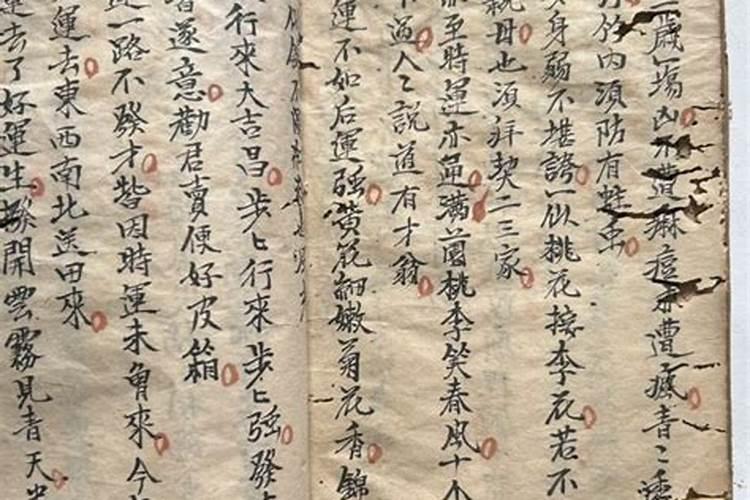 歲傷凶不遭麻痘亦遭瘋青々
竹內須防有蛀虫
身弱不堪誇一似桃花接李花若不
親母也須拜契二三家
至時運亦通滿園桃李笑春風十个
過人人說道有才翁
運不如后運強黃花細嫩菊花香錦
行來大吉昌步々行來步々強發
遂意勸君賣便好皮箱
一路不發才皆因時運未曾來今
運去東西南北送田來
運去了好運生撥開雲霧見青天